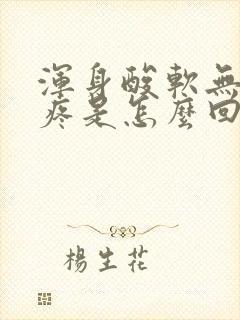 渾身酸軟無
疼是怎麼回
楊生花